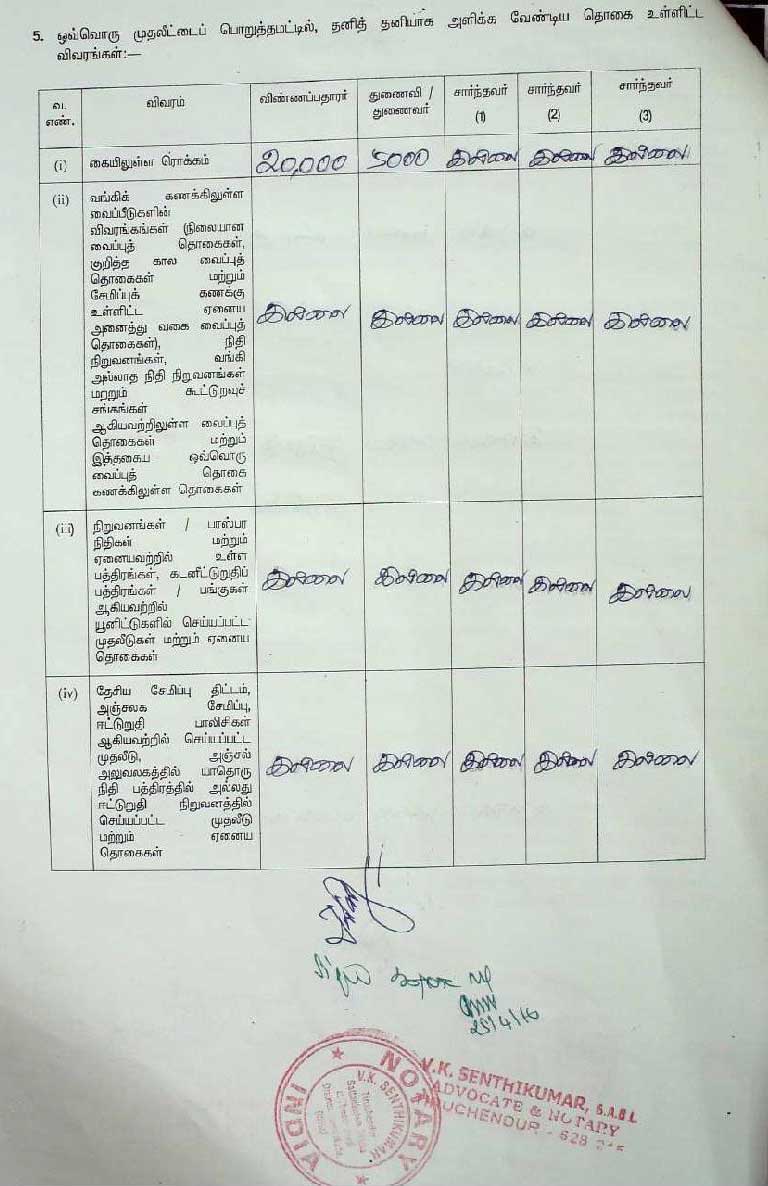 5. ஒவ்வொரு முதலீட்டைப் பொறுத்தமட்டில், தனித் தனியாக அளிக்க வேண்டிய தொகை உள்ளிட்ட
விவரங்கள்:—
வ. எண். விவரம் விண்ணப்பதாரர் துணைவி / துணைவர் சார்ந்தவர் (1) சார்ந்தவர் (2) சார்ந்தவர் (3)
(i) கையிலுள்ள ரொக்கம் 20,000 5000 இல்லை இல்லை இல்லை
(ii) வங்கிக் கணக்கிலுள்ள
வைப்பீடுகளின்
விவரங்கங்கள் (நிலையான
வைப்புத் தொகைகள்,
குறித்த கால வைப்புத்
தொகைகள் மற்றும்
சேமிப்புக் கணக்கு
உள்ளிட்ட ஏனைய
அனைத்து வகை வைப்புத்
தொகைகள்), நிதி
நிறுவனங்கள், வங்கி
அல்லாத நிதி நிறுவனங்கள்
மற்றும் கூட்டுறவுச்
சங்கங்கள்
ஆகியவற்றிலுள்ள வைப்புத்
தொகைகள் மற்றும்
இத்தகைய ஒவ்வொரு
வைப்புத் தொகை
கணக்கிலுள்ள தொகைகள்
இல்லை இல்லை இல்லை இல்லை இல்லை
(iii) நிறுவனங்கள் / பரஸ்பர
நிதிகள் மற்றும்
ஏனையவற்றில் உள்ள
பத்திரங்கள், கடனீட்டுறுதிப்
பத்திரங்கள் / பங்குகள்
ஆகியவற்றில்
யூனிட்டுகளில் செய்யப்பட்ட
முதலீடுகள் மற்றும் ஏனைய
தொகைகள்
இல்லை இல்லை இல்லை இல்லை இல்லை
(iv) தேசிய சேமிப்பு திட்டம்,
அஞ்சலக சேமிப்பு,
ஈட்டுறுதி பாலிசிகள்
ஆகியவற்றில் செய்யப்பட்ட
முதலீடு, அஞ்சல்
அலுவலகத்தில் யாதொரு
நிதி பத்திரத்தில் அல்லது
ஈட்டுறுதி நிறுவனத்தில்
செய்யப்பட்ட முதலீடு
மற்றும் ஏனைய
தொகைகள்
இல்லை இல்லை இல்லை இல்லை இல்லை
25/4/16
NOTARY
INDIA
V.K. SENTHIKUMAR
V.K. SENTHIKUMAR, B.A.B.L
ADVOCATE & NOTARY
TIRUCHENDUR - 628